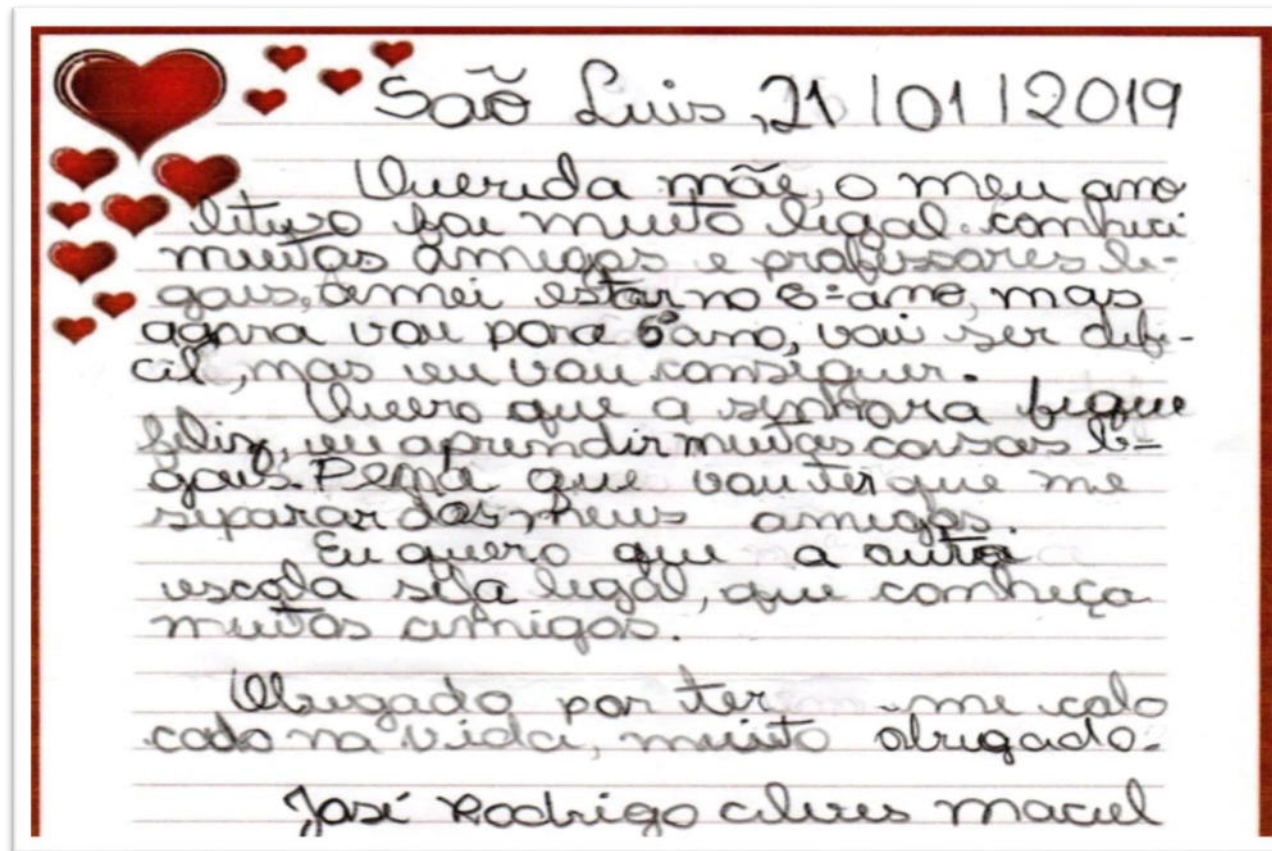 São Luis, 21/01/2019
Querida mãe, o meu ano
letivo foi muito legal. conheci
muitos amigos e professores le-
gais, amei estar no 5º ano, mas
agora vou para 6º ano, vai ser difi-
cil, mas eu vou conseguir.
Quero que a senhora fique
feliz, eu aprendir muitas coisas le-
gais. Pena que vou ter que me
separar dos meus amigos.
Eu quero que a outra
escola seja legal, que conheça
muitos amigos.
Obrigado por ter me colo
cado na vida, muito obrigado.
José Rodrigo Alves Maciel